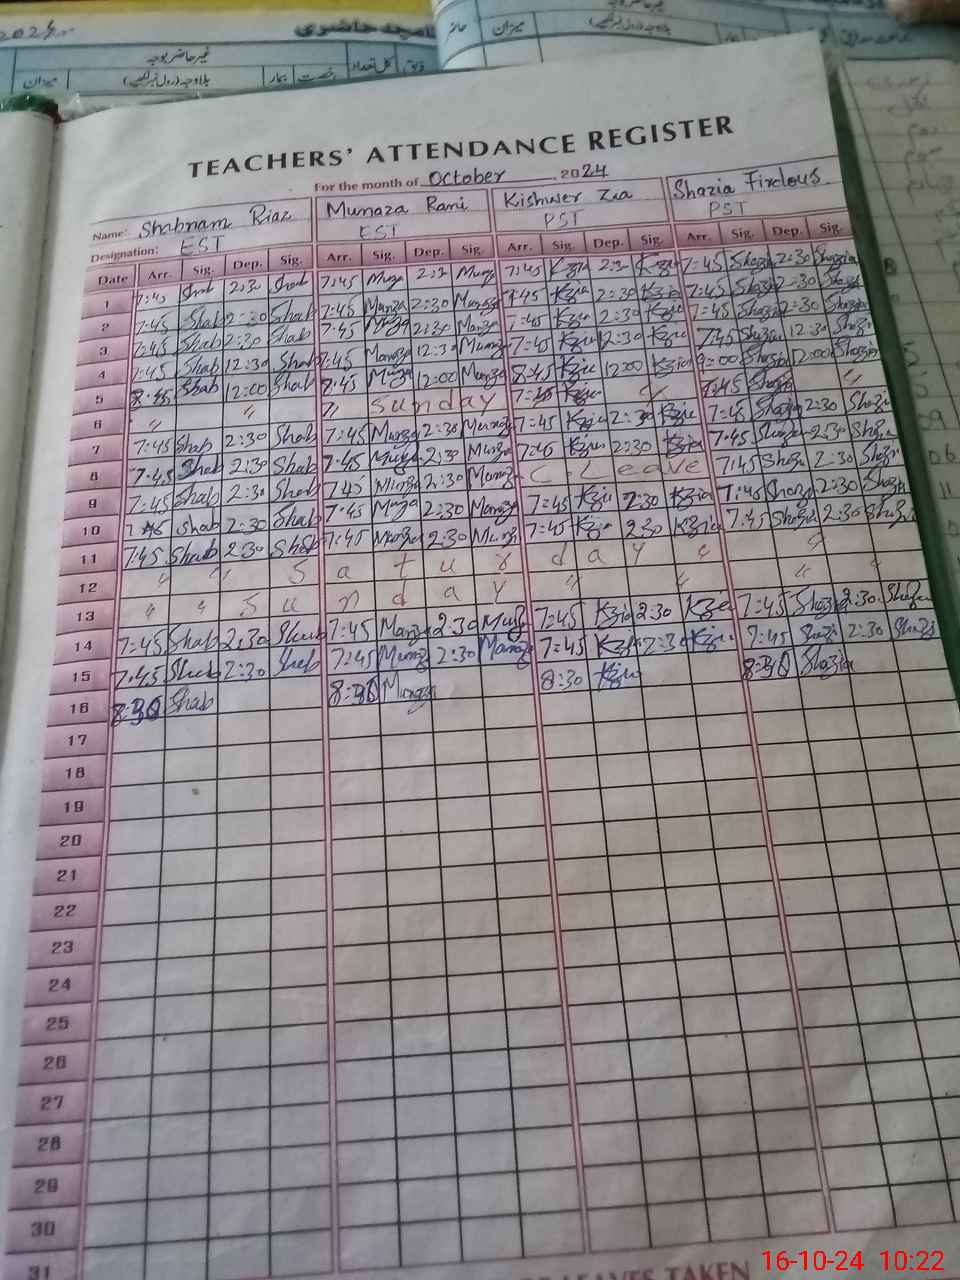 2024
غیر حاضر بوجہ
میزان بلاوجہ (رول نمبر لکھیں) بیمار رخصت کل تعداد
میزان حاضر
TEACHERS' ATTENDANCE REGISTER
For the month of October 2024
Name: Shabnam Riaz Munaza Rani Kishwer Zia Shazia Firdous
Designation: EST EST PST PST
Date Arr. Sig. Dep. Sig. Arr. Sig. Dep. Sig. Arr. Sig. Dep. Sig. Arr. Sig. Dep. Sig.
1 7:45 Shab 2:30 Shab 7:45 2:30 7:45 Kzia 2:30 Kzia 7:45 Shazia 2:30 Shazia
2 7:45 Shab 2:30 Shab 7:45 Munaza 2:30 Munaza 7:45 Kzia 2:30 Kzia 7:45 Shazia 2:30 Shazia
3 7:45 Shab 2:30 Shab 7:45 2:30 Munaza 7:45 Kzia 2:30 Kzia 7:45 Shazia 2:30 Shazia
4 7:45 Shab 12:30 Shab 7:45 Munaza 12:30 7:45 Kzia 12:30 Kzia 7:45 Shazia 12:30 Shazia
5 8:45 Shab 12:00 Shab 8:45 12:00 Munaza 8:45 Kzia 12:00 Kzia 9:00 Shazia 12:00 Shazia
6 " " " Sunday 7:45 Kzia " 7:45 Shazia "
7 7:45 Shab 2:30 Shab 7:45 Munaza 2:30 Munaza 7:45 Kzia 2:30 Kzia 7:45 Shazia 2:30 Shazia
8 7:45 Shab 2:30 Shab 7:45 2:30 7:45 Kzia 2:30 Kzia 7:45 Shazia 2:30 Shazia
9 7:45 Shab 2:30 Shab 7:45 Munaza 2:30 Munaza C. Leave 7:45 Shazia 2:30 Shazia
10 7:45 Shab 2:30 Shab 7:45 2:30 Munaza 7:45 Kzia 2:30 Kzia 7:45 Shazia 2:30 Shazia
11 7:45 Shab 2:30 Shab 7:45 Munaza 2:30 7:45 Kzia 2:30 Kzia 7:45 Shazia 2:30 Shazia
12 " " S a t u r d a y " "
13 " " S u n d a y " " " "
14 7:45 Shab 2:30 Shab 7:45 Munaza 2:30 7:45 Kzia 2:30 Kzia 7:45 Shazia 2:30
15 7:45 Shab 2:30 Shab 7:45 Munaza 2:30 Munaza 7:45 Kzia 2:30 Kzia 7:45 2:30
16 8:30 Shab 8:30 Munaza 8:30 Kzia 8:30 Shazia
17
18
19
20
21
22
23
24
25
26
27
28
29
30
31
LEAVES TAKEN
16-10-24 10:22